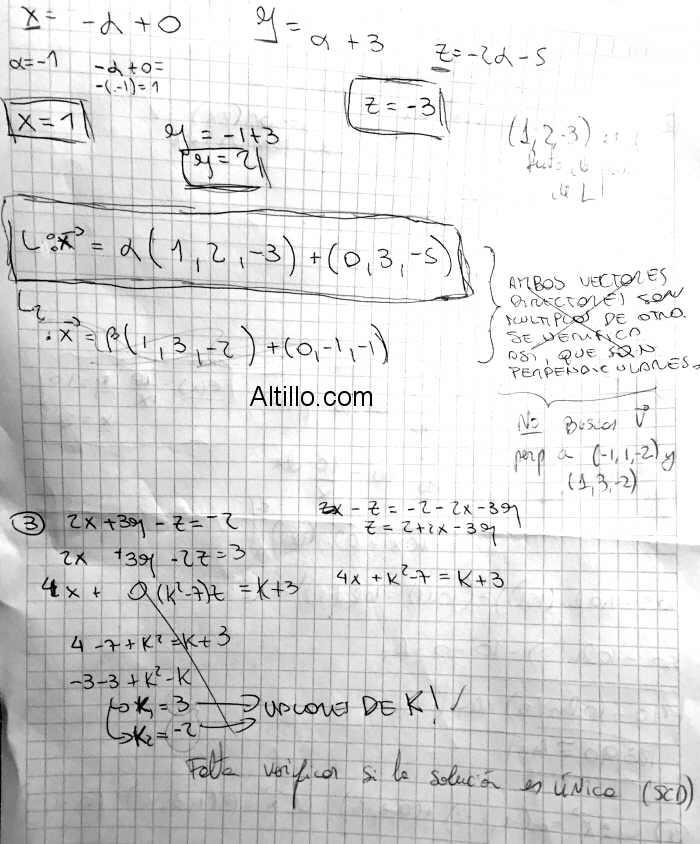 x = -α + 0
y = α + 3
z = -2α - 5
α = -1
-α + 0 =
-(-1) = 1
z = -3
x = 1
y = -1+3
y = 2
(1, 2, -3)
de L1
L: x = α(1, 2, -3) + (0, 3, -5)
L2
: x = β(1, 3, -2) + (0, -1, -1)
AMBOS VECTORES
DIRECTORES SON
MULTIPLOS DE OTRO.
SE VERIFICA
ASI, QUE SON
PERPENDICULARES.
Altillo.com
No Buscas V
perp a (-1, 1, -2) y
(1, 3, -2)
3 2x + 3y - z = -2
2x + 3y - 2z = 3
4x + 0 (k²-7)z = k+3
- z = -2 - 2x - 3y
z = 2 + 2x - 3y
4x + k² - 7 = k + 3
4 - 7 + k² = k + 3
-3 - 3 + k² - k
k1 = 3
k2 = -2
VALORES DE K!
Falta verificar si la solución es única (SCD)